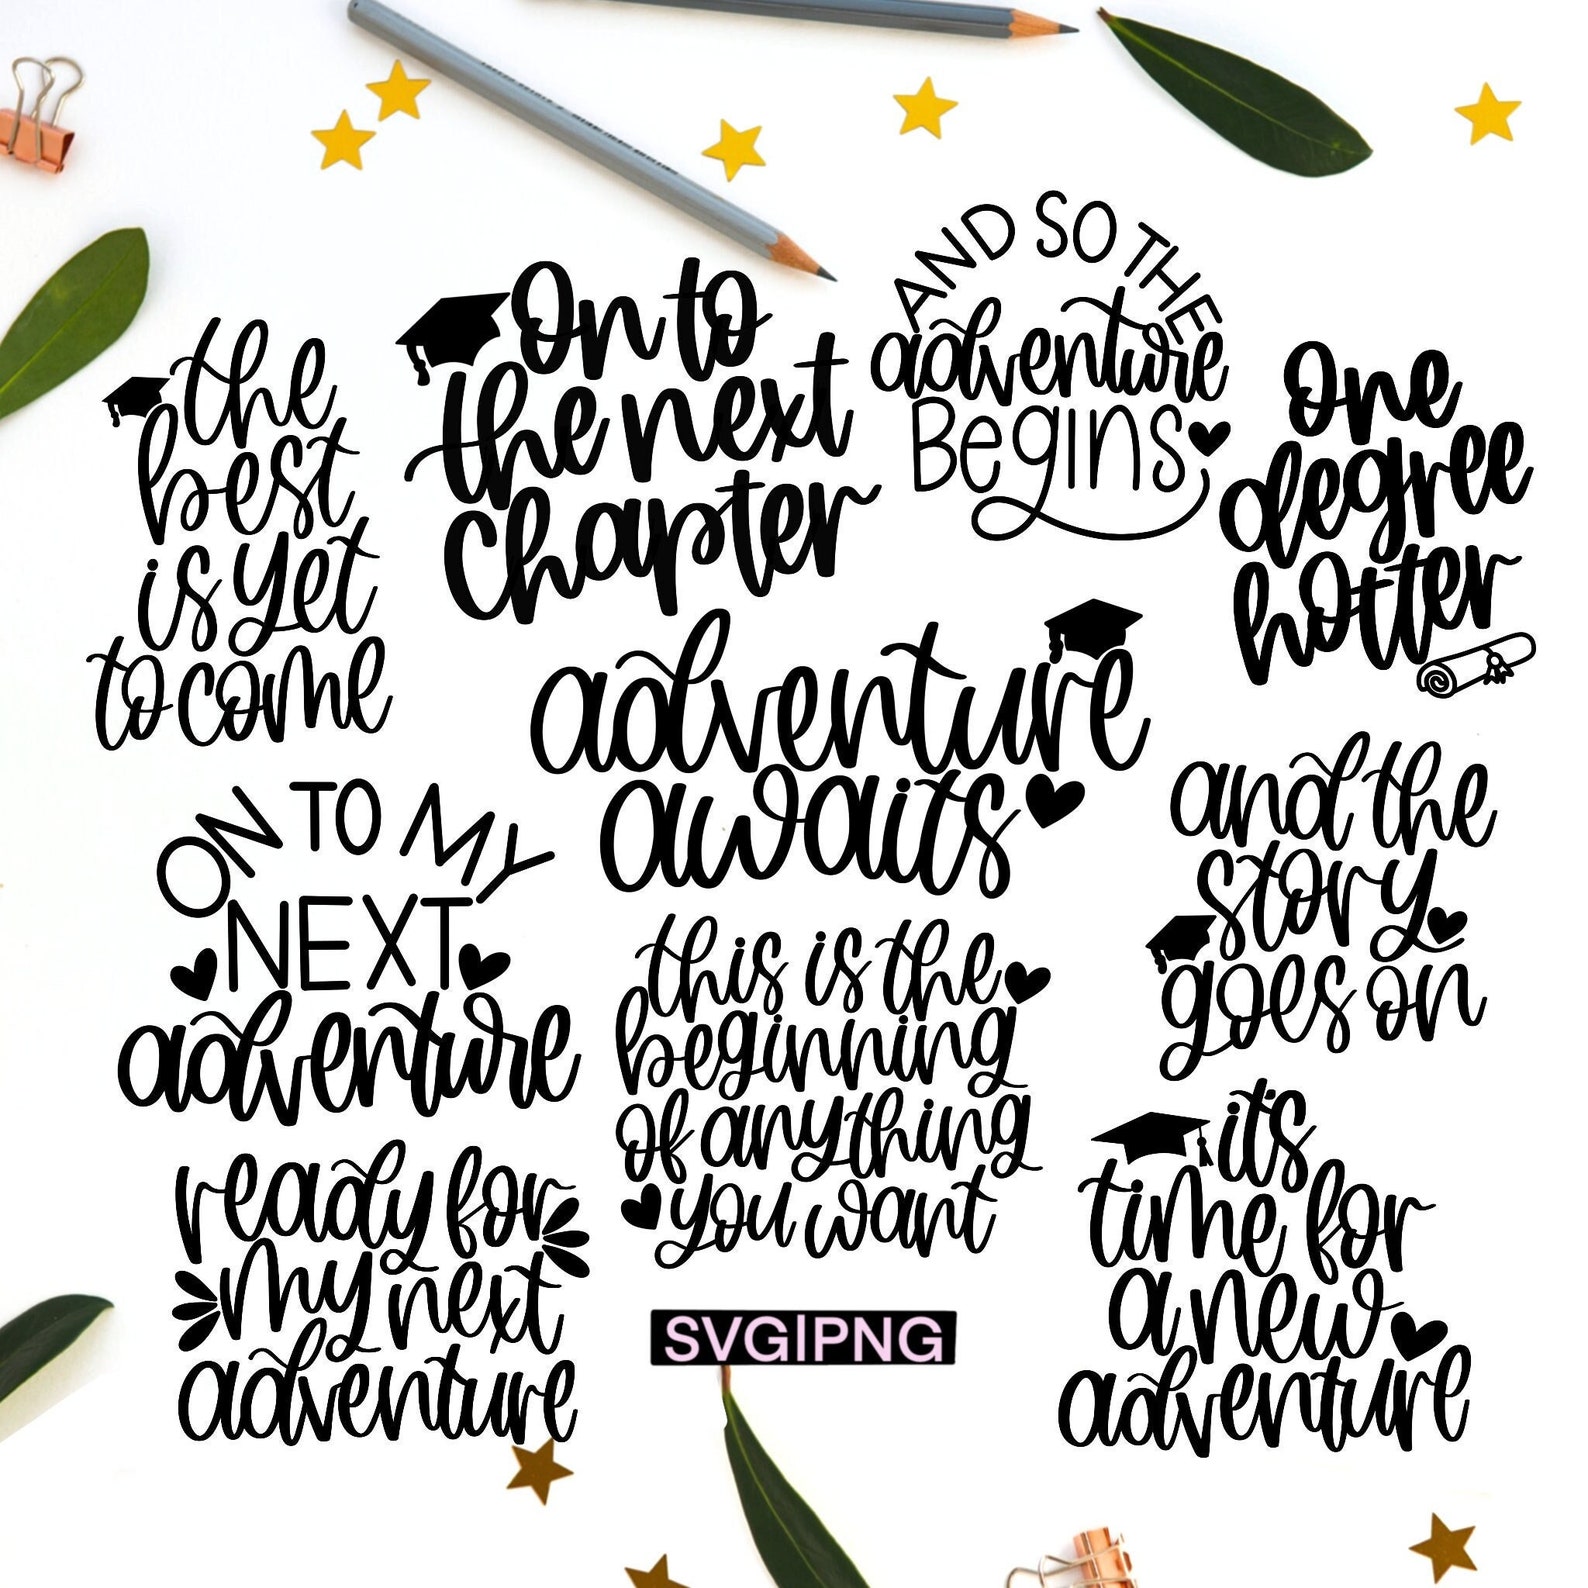 the
best
is yet
to come
On to
the next
chapter
AND SO THE
adventure
BEGINS
One
degree
hotter
adventure
awaits
ON TO MY
NEXT
adventure
this is the
beginning
of anything
you want
and the
story
goes on
ready for
my next
adventure
it's
time for
a new
adventure
SVG|PNG